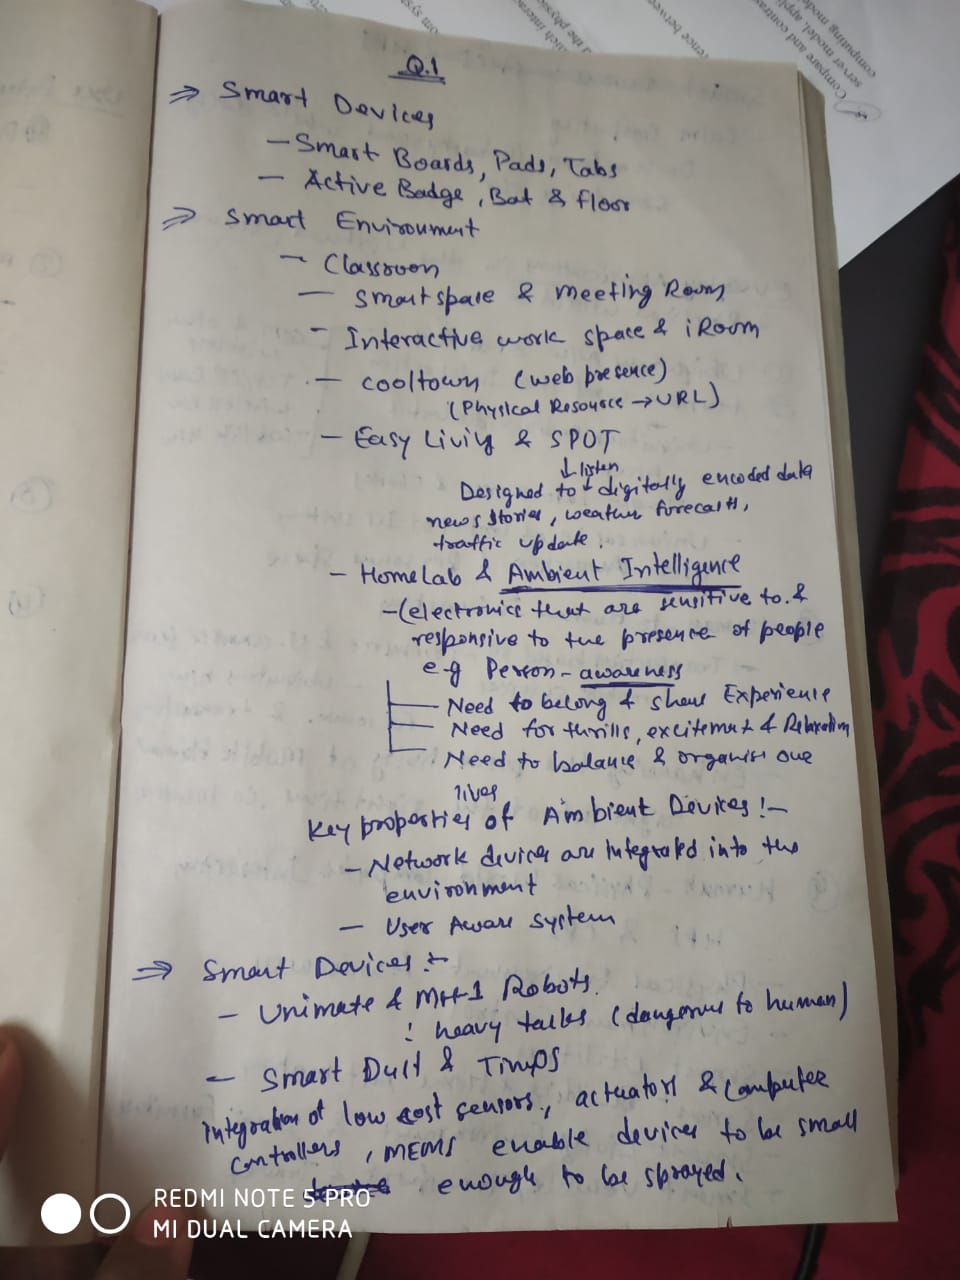 Q.1
⇒ Smart Devices
- Smart Boards, Pads, Tabs
- Active Badge, Bat & floor
⇒ Smart Environment
- Classroom
- Smart space & meeting Room
- Interactive work space & iRoom
- cooltown (web presence)
(Physical Resource → URL)
- Easy Living & SPOT
↓ listen
Designed to digitally encoded data
news stories, weather forecasts,
traffic update.
- HomeLab & Ambient Intelligence
- (electronics that are sensitive to &
responsive to the presence of people
e.g Person - awareness
Need to belong & share Experience
Need for thrills, excitement & Relaxation
Need to balance & organise our
lives
Key properties of Ambient Devices :-
- Network devices are Integrated into the
environment
- User Aware system
⇒ Smart Devices :-
- Unimate & MH-1 Robots.
: heavy talks (dangerous to human)
- Smart Dust & TinyOS
integration of low cost sensors, actuators & computer
controllers, MEMS enable devices to be small
enough to be sprayed.
REDMI NOTE 5 PRO
MI DUAL CAMERA
Compare and contrast
server model, appl
computing mode
rence between
the physic
which interac
om sys